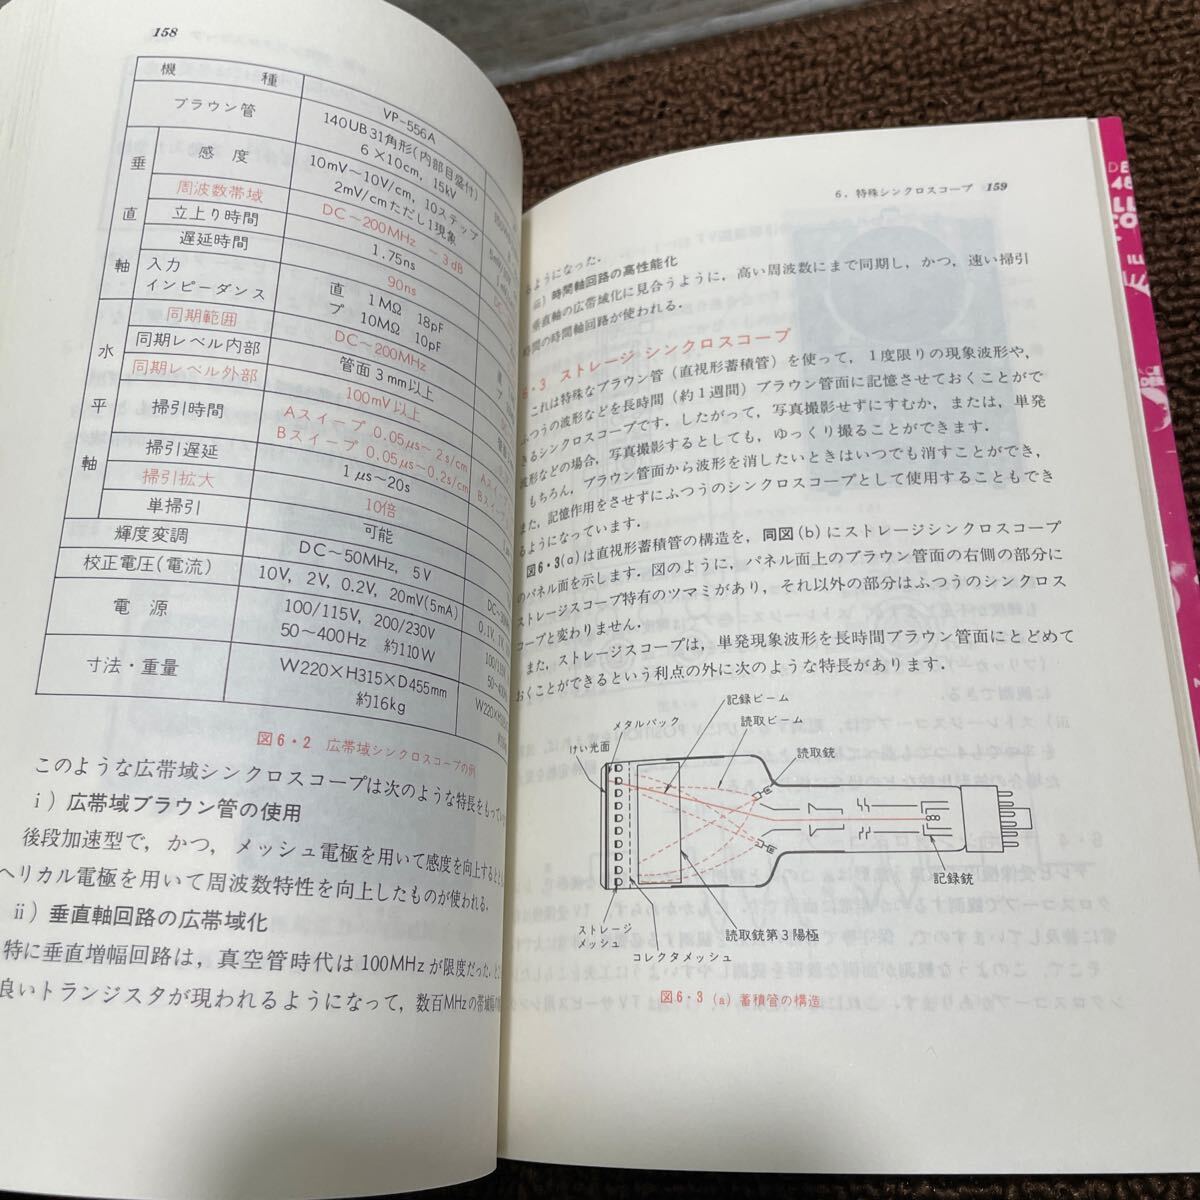 158
機 種
VP-556A
ブラウン管
140UB31角形(内部目盛付)
6×10cm, 15kV
垂直軸
感度
10mV~10V/cm, 10ステップ
2mV/cmただし1現象
周波数帯域
DC~200MHz −3dB
立上り時間
1.75ns
遅延時間
90ns
入力
インピーダンス
直 1MΩ 18pF
プ 10MΩ 10pF
水平軸
同期範囲
DC~200MHz
同期レベル内部
管面3mm以上
同期レベル外部
100mV以上
掃引時間
Aスイープ 0.05μs~2s/cm
Bスイープ 0.05μs~0.2s/cm
掃引遅延
1μs~20s
掃引拡大
10倍
単掃引
可能
輝度変調
DC~50MHz, 5V
校正電圧(電流)
10V, 2V, 0.2V, 20mV(5mA)
電源
100/115V, 200/230V
50~400Hz 約110W
寸法・重量
W220×H315×D455mm
約16kg
図6・2 広帯域シンクロスコープの例
このような広帯域シンクロスコープは次のような特長をもってい
i)広帯域ブラウン管の使用
後段加速型で,かつ,メッシュ電極を用いて感度を向上するととも
ヘリカル電極を用いて周波数特性を向上したものが使われる.
ii)垂直軸回路の広帯域化
特に垂直増幅回路は,真空管時代は100MHzが限度だった
良いトランジスタが現われるようになって,数百MHzの帯域幅
6.特殊シンクロスコープ 159
るようになった.
iii)時間軸回路の高性能化
垂直軸の広帯域化に見合うように,高い周波数にまで同期し,かつ,速い掃引
時間の時間軸回路が使われる.
6・3 ストレージ シンクロスコープ
これは特殊なブラウン管(直視形蓄積管)を使って,1度限りの現象波形や,
ふつうの波形などを長時間(約1週間)ブラウン管面に記憶させておくことがで
きるシンクロスコープです.したがって,写真撮影せずにすむか,または,単発
波形などの場合,写真撮影するとしても,ゆっくり撮ることができます.
もちろん,ブラウン管面から波形を消したいときはいつでも消すことができ,
また,記憶作用をさせずにふつうのシンクロスコープとして使用することもでき
るようになっています.
図6・3(a)は直視形蓄積管の構造を,同図(b)にストレージシンクロスコープ
のパネル面を示します.図のように,パネル面上のブラウン管面の右側の部分に
ストレージスコープ特有のツマミがあり,それ以外の部分はふつうのシンクロス
コープと変わりません.
また,ストレージスコープは,単発現象波形を長時間ブラウン管面にとどめて
おくことができるという利点の外に次のような特長があります.
記録ビーム
メタルバック
読取ビーム
けい光面
読取銃
記録銃
ストレージ
メッシュ
読取銃第3陽極
コレクタメッシュ
図6・3 (a)蓄積管の構造